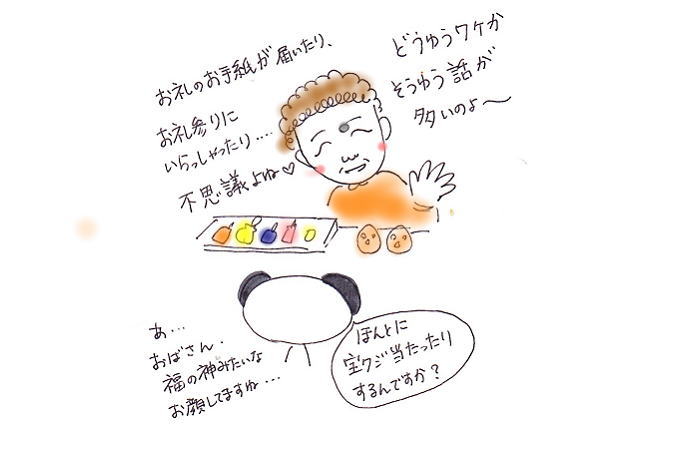 どうゆうワケか
そうゆう話が
多いのよ〜
お礼のお手紙が届いたり、
お礼参りに
いらっしゃったり....
不思議よね♡
ほんとに
宝クジ当たったり
するんですか？
あ...
おばさん・
福の神みたいな
お顔してますね...